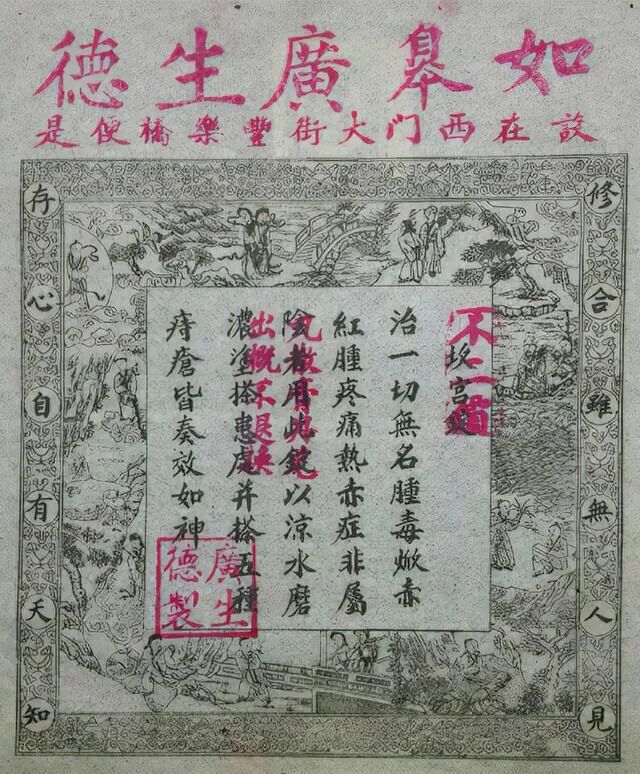 如皋廣生德
設在西門大街豐樂橋便是
修合雖無人見
不二價
坎宮錠
治一切無名腫毒焮赤
紅腫疼痛熱赤症非屬
陰者用此錠以涼水磨
濃塗搭患處并搭五種
痔瘡皆奏效如神
出概不退換
廣生德製
存心自有天知